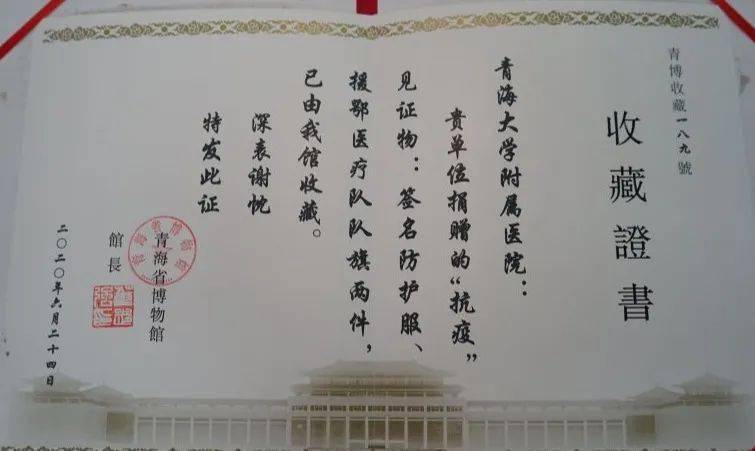 青博收藏一八九號
收藏證書
青海大学附属医院：
贵单位捐赠的“抗疫”
见证物：签名防护服、
援鄂医疗队队旗两件，
已由我馆收藏。
深表谢忱
特发此证
青海省博物館
館長
二〇二〇年六月二十四日
青海省博物館